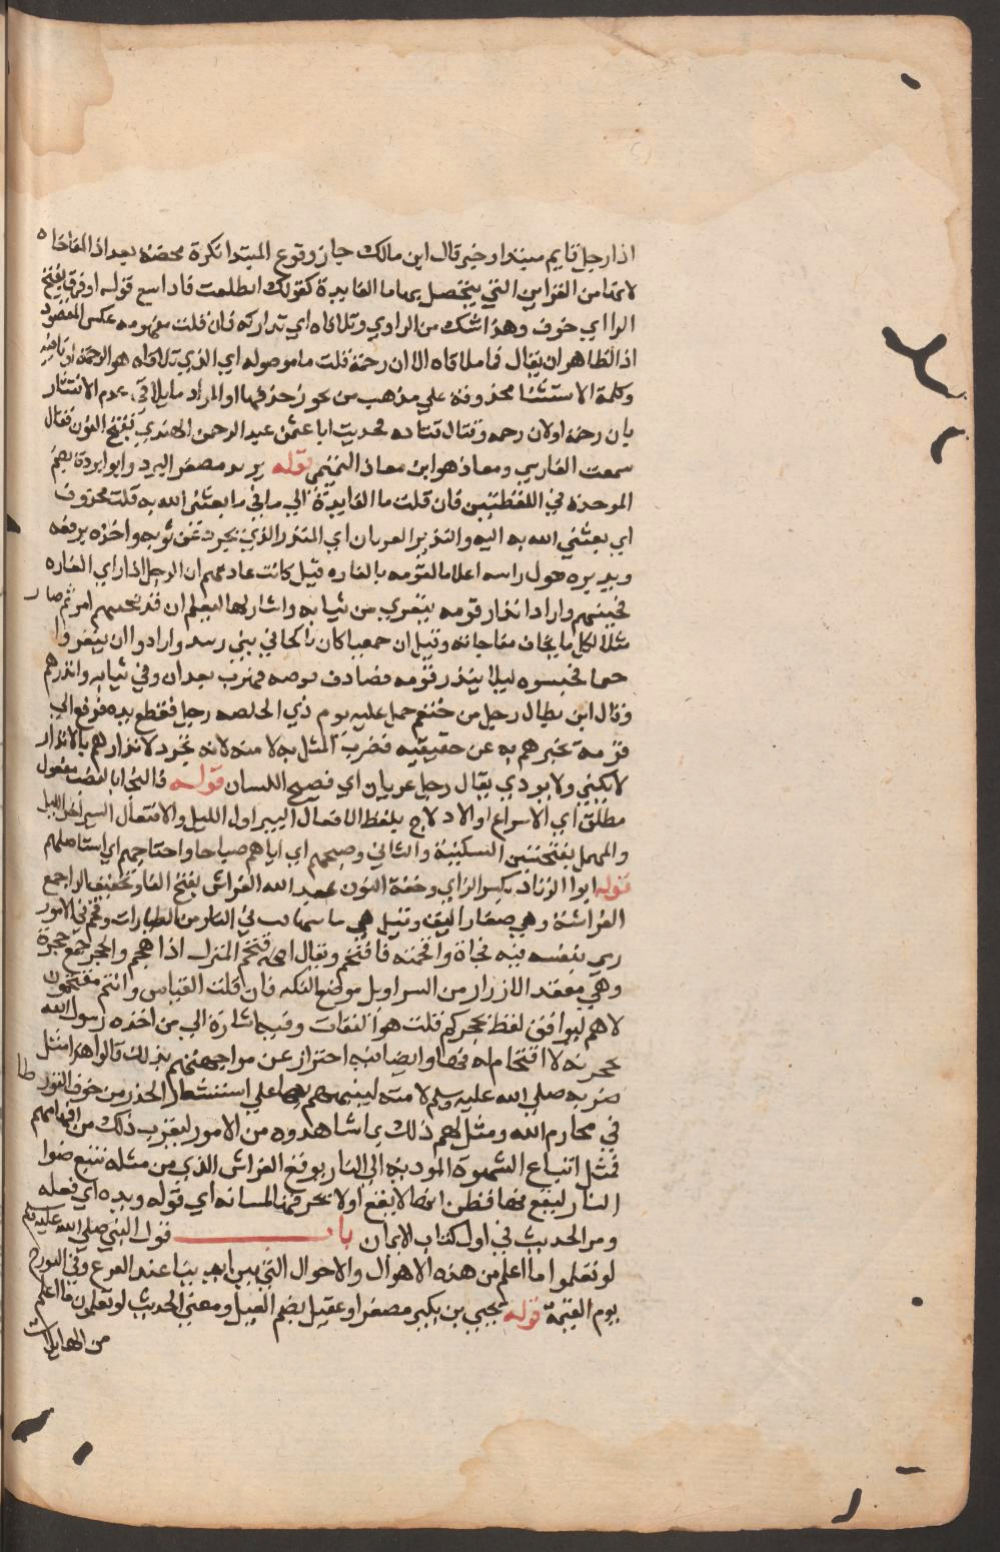 اذا رجل قايم مبتدا وخبر قال ابن مالك جاز وقوع المبتدا نكرة محضة بعد اذا المفاجاه
لانها من القراين التي يتحصل بها الفايدة كقولك انطلقت فاذا سبع قوله او فرق بفتح
الرا اي خوف وهذا شك من الراوي وتلافاه اي تداركه فان قلت مفهومه عكس المقصود
اذ الظاهر ان يقال فما تلافاه الا ان رحمه قلت ما موصوله اي الذي تلافاه هو الرحمة او نافيه
وكلمة الاستثنا محذوفة علي مذهب من يجوز حذفها او المراد ما تلافي عدم الابتئار
بان رحمه او لان رحمه وقال قتاده فحديث ابا عثمن عبد الرحمن النهدي بفتح النون فقال
سمعت الفارسي ومعاذ هو ابن معاذ التميمي قوله بريد مصغر البرد وابو بردة بضم
الموحدة في اللفظتين فان قلت ما الفايدة في ما بعثني الله به قلت محذوف
اي بعثني الله به اليه والنذير العريان اي المنذر الذي تجرد عن ثوبه واخذه يرفعه
ويديره حول راسه اعلاما لقومه بالغاره قيل كانت عادتهم ان الرجل اذا راي الغاره
فجيتهم واراد انذار قومه يتعري من ثيابه واشار بها ليعلم ان قد فجيهم امر ثم صار
مثلا لكل ما يخاف مفاجاته وقيل ان جمعا كان ناكحا في بني زبيد وارادوا ان يغزوا
فحبسوه ليلا ينذر قومه فصادف فرصه فهرب بعد ان رمي ثيابه وانذرهم
وقال ابن بطال رجل من خثعم حمل عليه يوم ذي الخلصه رجل فقطع يده فرفع الي
قومه يخبرهم به عن حقيقته فضرب المثل به لامته لانه تجرد لانذارهم بالانذار
قوله فالنجا بالنصب مفعول
مطلق اي الاسراع والادلاج بلفظ الافعال السير اول الليل والافتعال السير اخر الليل
والمهل بفتحتين السكينة والثاني وصبحهم اي اتاهم صباحا واجتاحهم اي استاصلهم
قوله ابو الزناد بكسر الزاي وخفة النون عبد الله الفراش بفتح الفا وتخفيف الرا جمع
الفراشة وهي صغار البق وقيل هي ما يتهافت في النار من الطيارات وقحم في الامور
رمي بنفسه فيه فجاة واقحمته فاقتحم ويقال اقتحم المنزل اذا هجم والحجز جمع حجزة
وهي معقد الازرار من السراويل موضع التكه فان قلت القياس وانتم مقتحمون
لا هم ليوافق لفظ بحجزكم قلت هو التفات وفيه اشارة الي من اخذه رسول الله
بحجزته لا اقتحام له فيها وايضا فيه احتراز عن مواجهتهم بذلك قالوا هذا مثل
ضربه صلي الله عليه وسلم لامته لينبههم بها علي استشعار الحذر من خوف التورط
في محارم الله ومثل لهم ذلك بما شاهدوه من الامور ليقرب ذلك من افهامهم
فمثل اتباع الشهوة المودية الي النار بوقوع الفراش الذي من مثله تتبع ضوا
النار ليقع فيها فظن انها لا يقع او لا يحرقها لسانه اي قوله ويده اي فعله
ومر الحديث في اول كتاب الايمان باب قول النبي صلي الله عليه وسلم
لو تعلموا ما اعلم من هذه الاهوال والاحوال التي بين ايدينا عند النزع وفي البرزخ
يوم القيمة قوله يحيي بن بكير مصغرا وعقيل بضم العين ومعني الحديث لو تعلمون ما اعلم
من الهايلات